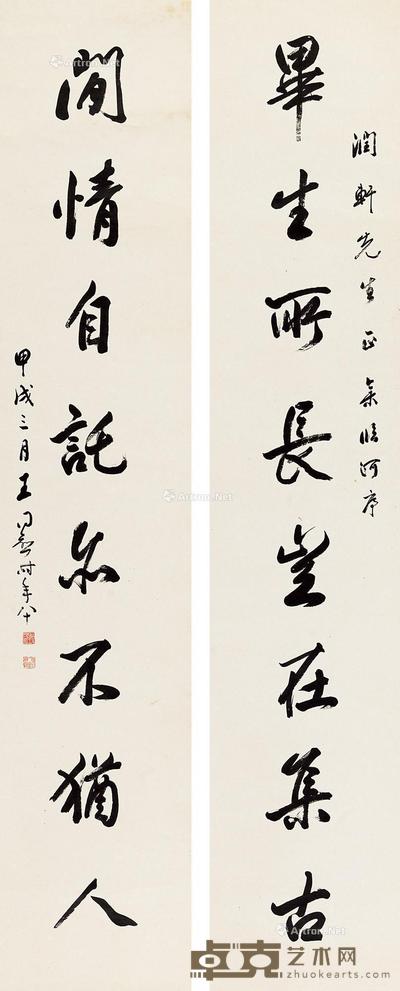 潤軒先生正 集臨河序
畢生所長豈在集古
閒情自託亦不猶人
甲戌三月王同愈時年八十
Artron.Net
卓克艺术网
zhuokearts.com